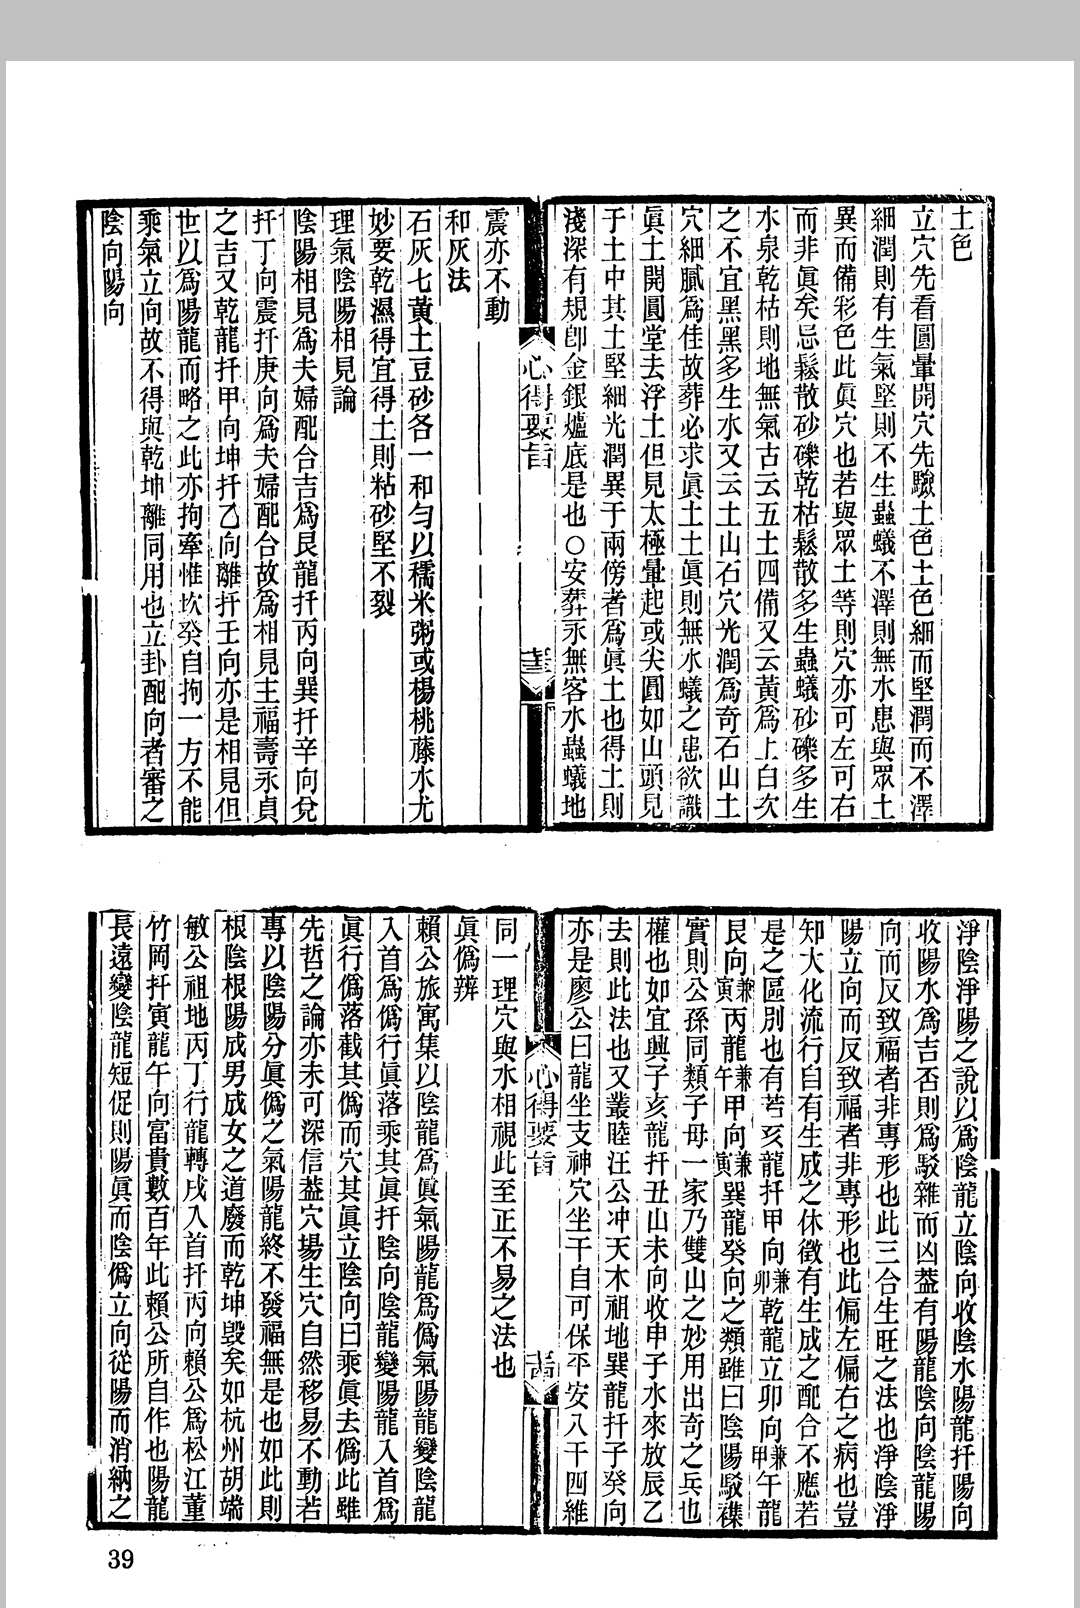 土色
立穴先看圓暈開穴先驗土色土色細而堅潤而不澤
細潤則有生氣堅則不生蟲蟻不澤則無水患與眾土
異而備彩色此眞穴也若與眾土等則穴亦可左可右
而非眞矣忌鬆散砂礫乾枯鬆散多生蟲蟻砂礫多生
水泉乾枯則地無氣古云五土四備又云黃爲上白次
之不宜黑黑多生水又云土山石穴光潤爲奇石山土
穴細膩爲佳故葬必求眞土土眞則無水蟻之患欲識
眞土開圓堂去浮土但見太極暈起或尖圓如山頭見
于土中其土堅細光潤異于兩傍者爲眞土也得土則
淺深有規卽金銀爐底是也○安葬永無客水蟲蟻地
心得要旨
震亦不動
和灰法
石灰七黃土豆砂各一和勻以糯米粥或楊桃藤水尤
妙要乾濕得宜得土則粘砂堅不裂
理氣陰陽相見論
陰陽相見爲夫婦配合吉爲艮龍扦丙向巽扦辛向兌
扦丁向震扦庚向爲夫婦配合故爲相見主福壽永貞
之吉又乾龍扦甲向坤扦乙向離扦壬向亦是相見但
世以爲陽龍而略之此亦拘牽惟坎癸自拘一方不能
乘氣立向故不得與乾坤離同用也立卦配向者審之
陰向陽向
淨陰淨陽之說以爲陰龍立陰向收陰水陽龍扦陽向
收陽水爲吉否則爲駁雜而凶蓋有陽龍陰向陰龍陽
向而反致福者非專形也此三合生旺之法也淨陰淨
陽立向而反致福者非專形也此偏左偏右之病也豈
知大化流行自有生成之休徵有生成之配合不應若
是之區別也有若亥龍扦甲向兼卯乾龍立卯向兼甲午龍
艮向兼寅丙龍兼午甲向兼寅巽龍癸向之類雖曰陰陽駁襍
實則公孫同類子母一家乃雙山之妙用出奇之兵也
權也如宜興子亥龍扦丑山未向收申子水來放辰乙
去則此法也又叢睦汪公冲天木祖地巽龍扦子癸向
亦是廖公曰龍坐支神穴坐干自可保平安八干四維
心得要旨
同一理穴與水相視此至正不易之法也
眞僞辨
賴公旅寓集以陰龍爲眞氣陽龍爲僞氣陽龍變陰龍
入首爲僞行眞落乘其眞扦陰向陰龍變陽龍入首爲
眞行僞落截其僞而穴其眞立陰向曰乘眞去僞此雖
先哲之論亦未可深信葢穴場生穴自然移易不動若
專以陰陽分眞僞之氣陽龍終不發福無是也如此則
根陰根陽成男成女之道廢而乾坤毀矣如杭州胡端
敏公祖地丙丁行龍轉戌入首扦丙向賴公爲松江董
竹岡扦寅龍午向富貴數百年此賴公所自作也陽龍
長遠變陰龍短促則陽眞而陰僞立向從陽而消納之
39